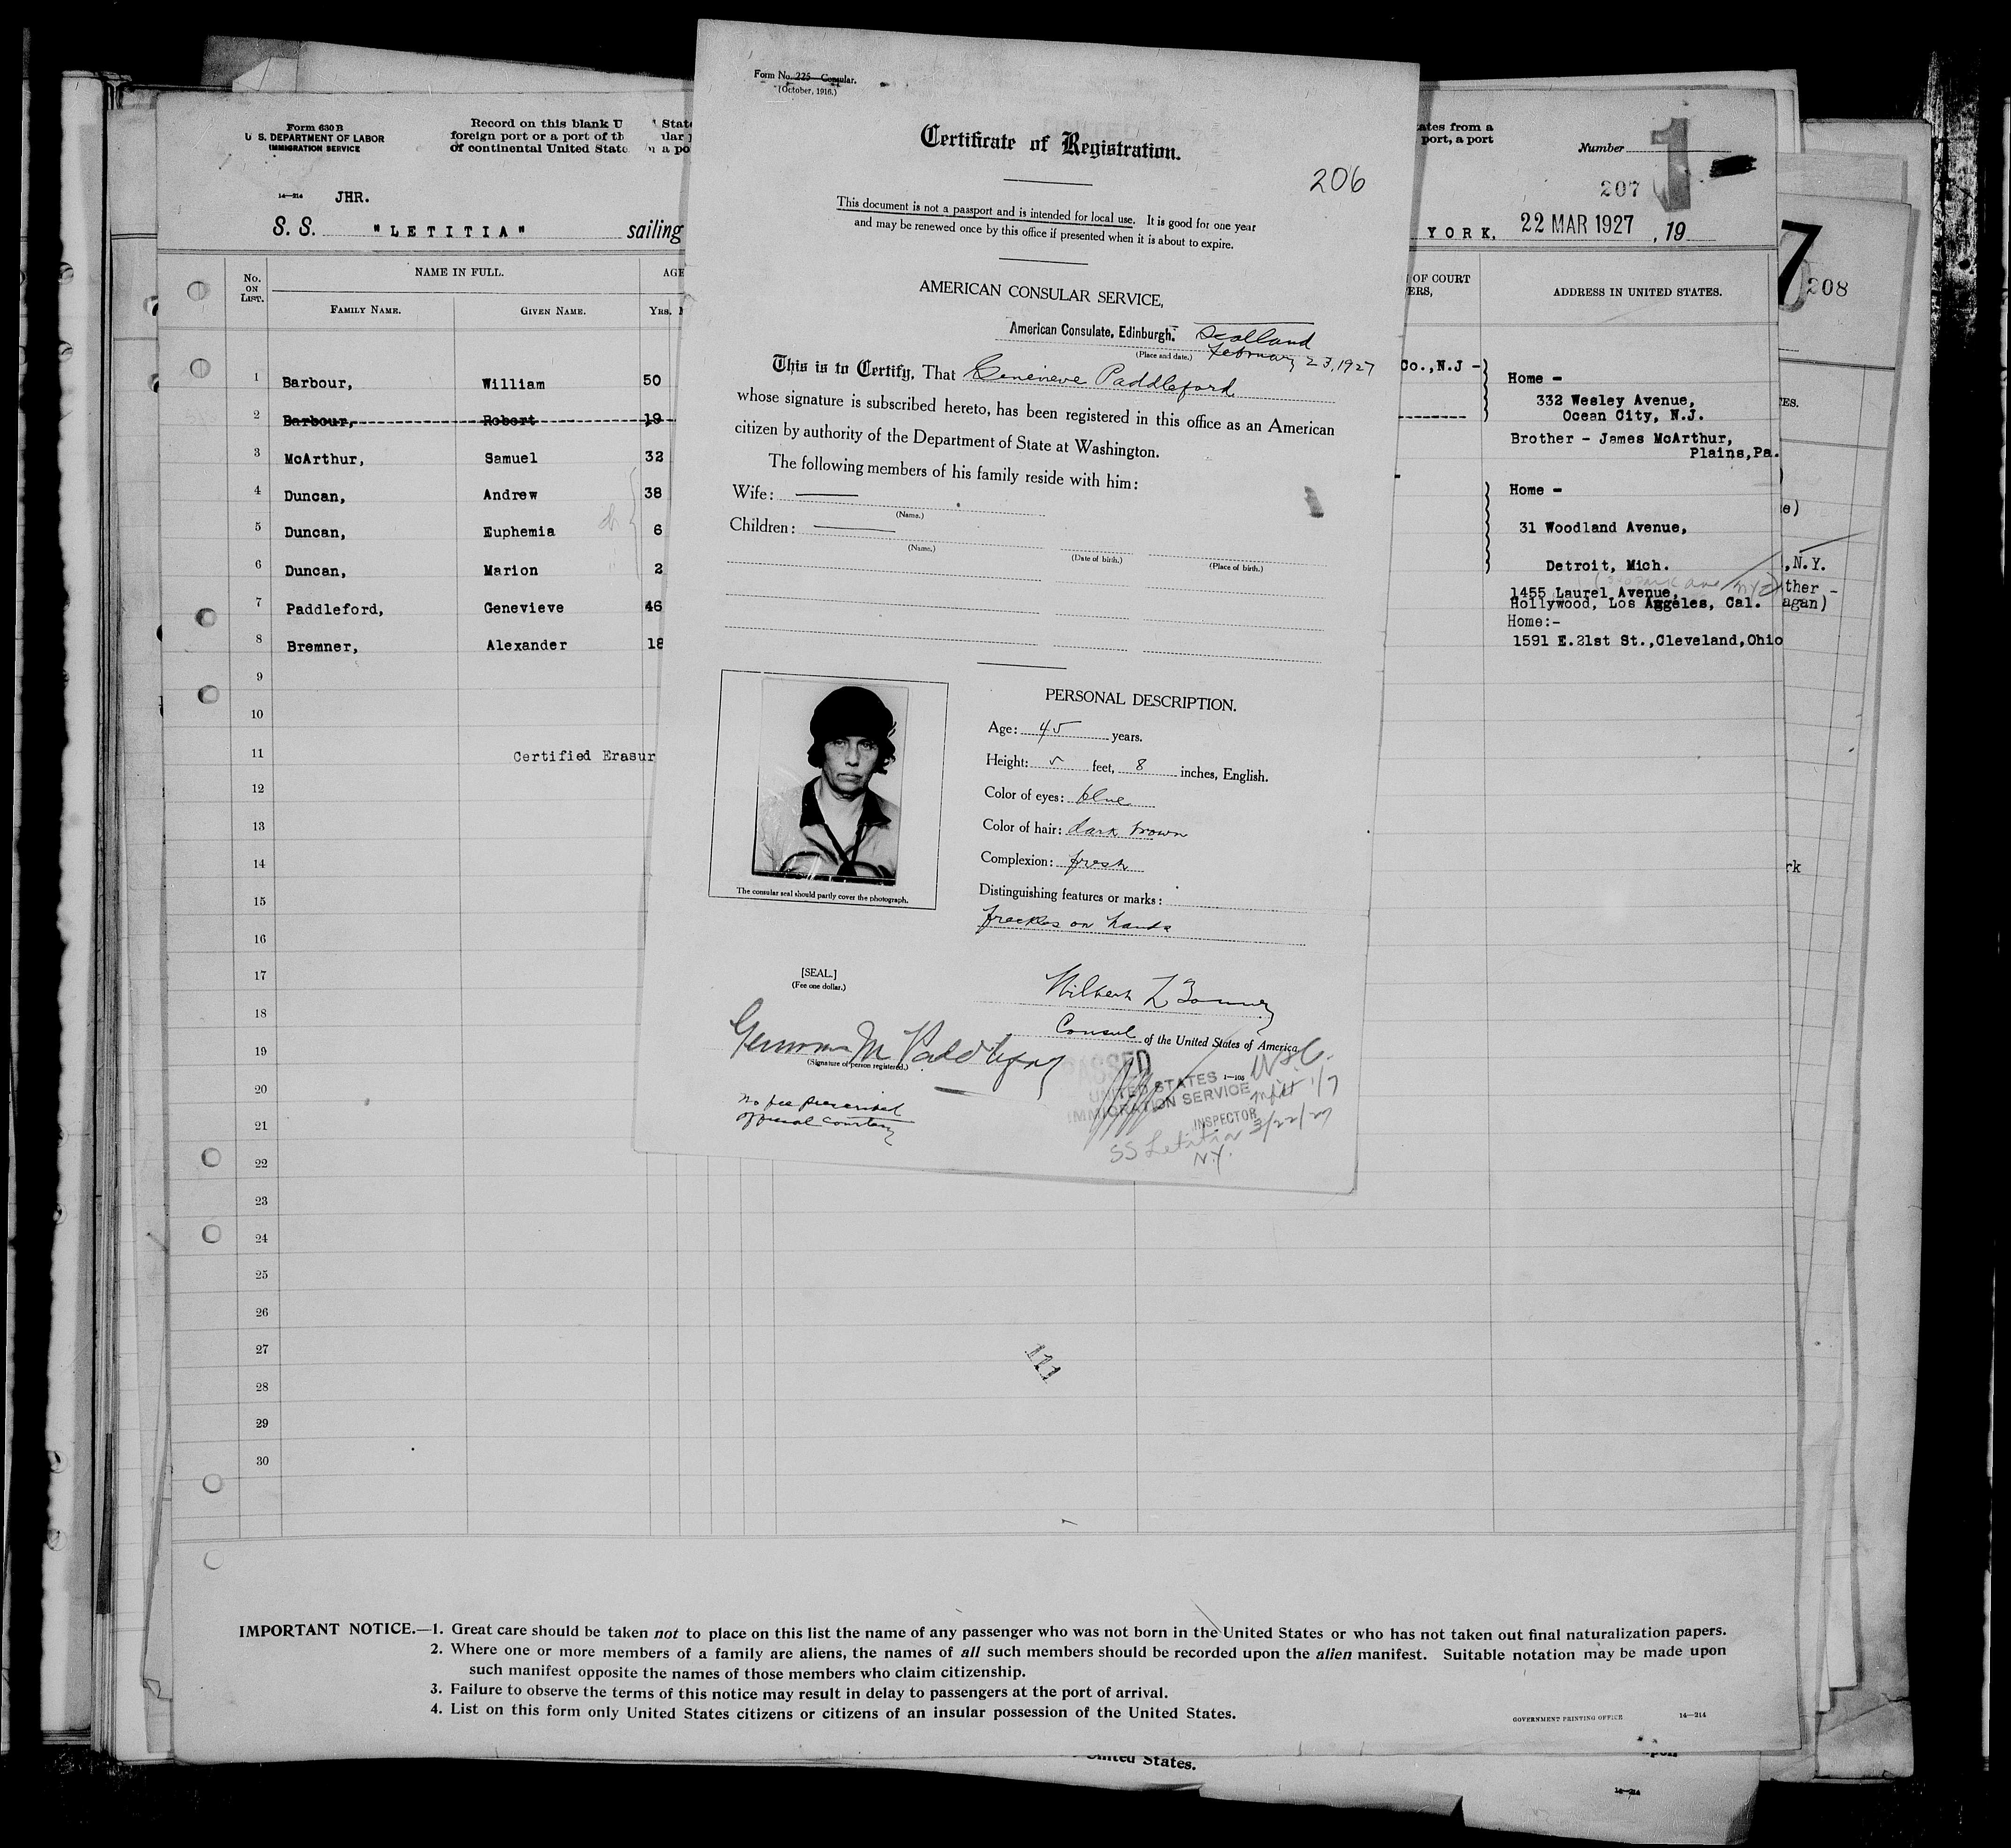 Form No. 225—Consular.
(October, 1916.)
Certificate of Registration.
206
This document is not a passport and is intended for local use. It is good for one year
and may be renewed once by this office if presented when it is about to expire.
AMERICAN CONSULAR SERVICE,
American Consulate, Edinburgh. Scotland
(Place and date.) February 23, 1927
This is to Certify, That Genevieve Paddleford
whose signature is subscribed hereto, has been registered in this office as an American
citizen by authority of the Department of State at Washington.
The following members of his family reside with him:
Wife:
(Name.)
Children:
(Name.) (Date of birth.) (Place of birth.)
PERSONAL DESCRIPTION.
Age: 45 years.
Height: 5 feet, 8 inches, English.
Color of eyes: blue
Color of hair: dark brown
Complexion: fresh
Distinguishing features or marks:
freckles on hands
The consular seal should partly cover the photograph.
[SEAL.]
(Fee one dollar.)
Consul of the United States of America
1—105
M Paddleford
(Signature of person registered.)
No fee prescribed
official courtesy
PASSED
UNITED STATES
IMMIGRATION SERVICE
INSPECTOR
SS Letitia 3/22/27
N.Y.
Form 630 B
U. S. DEPARTMENT OF LABOR
IMMIGRATION SERVICE
Record on this blank U State
foreign port or a port of th ular
of continental United State a po
ates from a
port, a port
Number
1
207
14—214 JHR.
S. S. "LETITIA" sailing
YORK, 22 MAR 1927, 19
No. ON LIST.
NAME IN FULL.
AGE
OF COURT
ERS,
ADDRESS IN UNITED STATES.
FAMILY NAME. GIVEN NAME. YRS.
1 Barbour, William 50
Co.,N.J -
Home -
332 Wesley Avenue,
Ocean City, N.J.
2 Barbour, Robert 19
3 McArthur, Samuel 32
Brother - James McArthur,
Plains,Pa.
4 Duncan, Andrew 38
Home -
5 Duncan, Euphemia 6
31 Woodland Avenue,
6 Duncan, Marion 2
Detroit, Mich.
7 Paddleford, Genevieve 46
1455 Laurel Avenue,
Hollywood, Los Aggeles, Cal.
8 Bremner, Alexander 18
Home:-
1591 E.21st St.,Cleveland,Ohio
9
10
11 Certified Erasur
12
13
14
15
16
17
18
19
20
21
22
23
24
25
26
27
28
29
30
111
7
208
ES.
e)
,N.Y.
ther -
agan)
rk
IMPORTANT NOTICE.—1. Great care should be taken not to place on this list the name of any passenger who was not born in the United States or who has not taken out final naturalization papers.
2. Where one or more members of a family are aliens, the names of all such members should be recorded upon the alien manifest. Suitable notation may be made upon
such manifest opposite the names of those members who claim citizenship.
3. Failure to observe the terms of this notice may result in delay to passengers at the port of arrival.
4. List on this form only United States citizens or citizens of an insular possession of the United States.
GOVERNMENT PRINTING OFFICE 14—214
United States.
upon
14—214